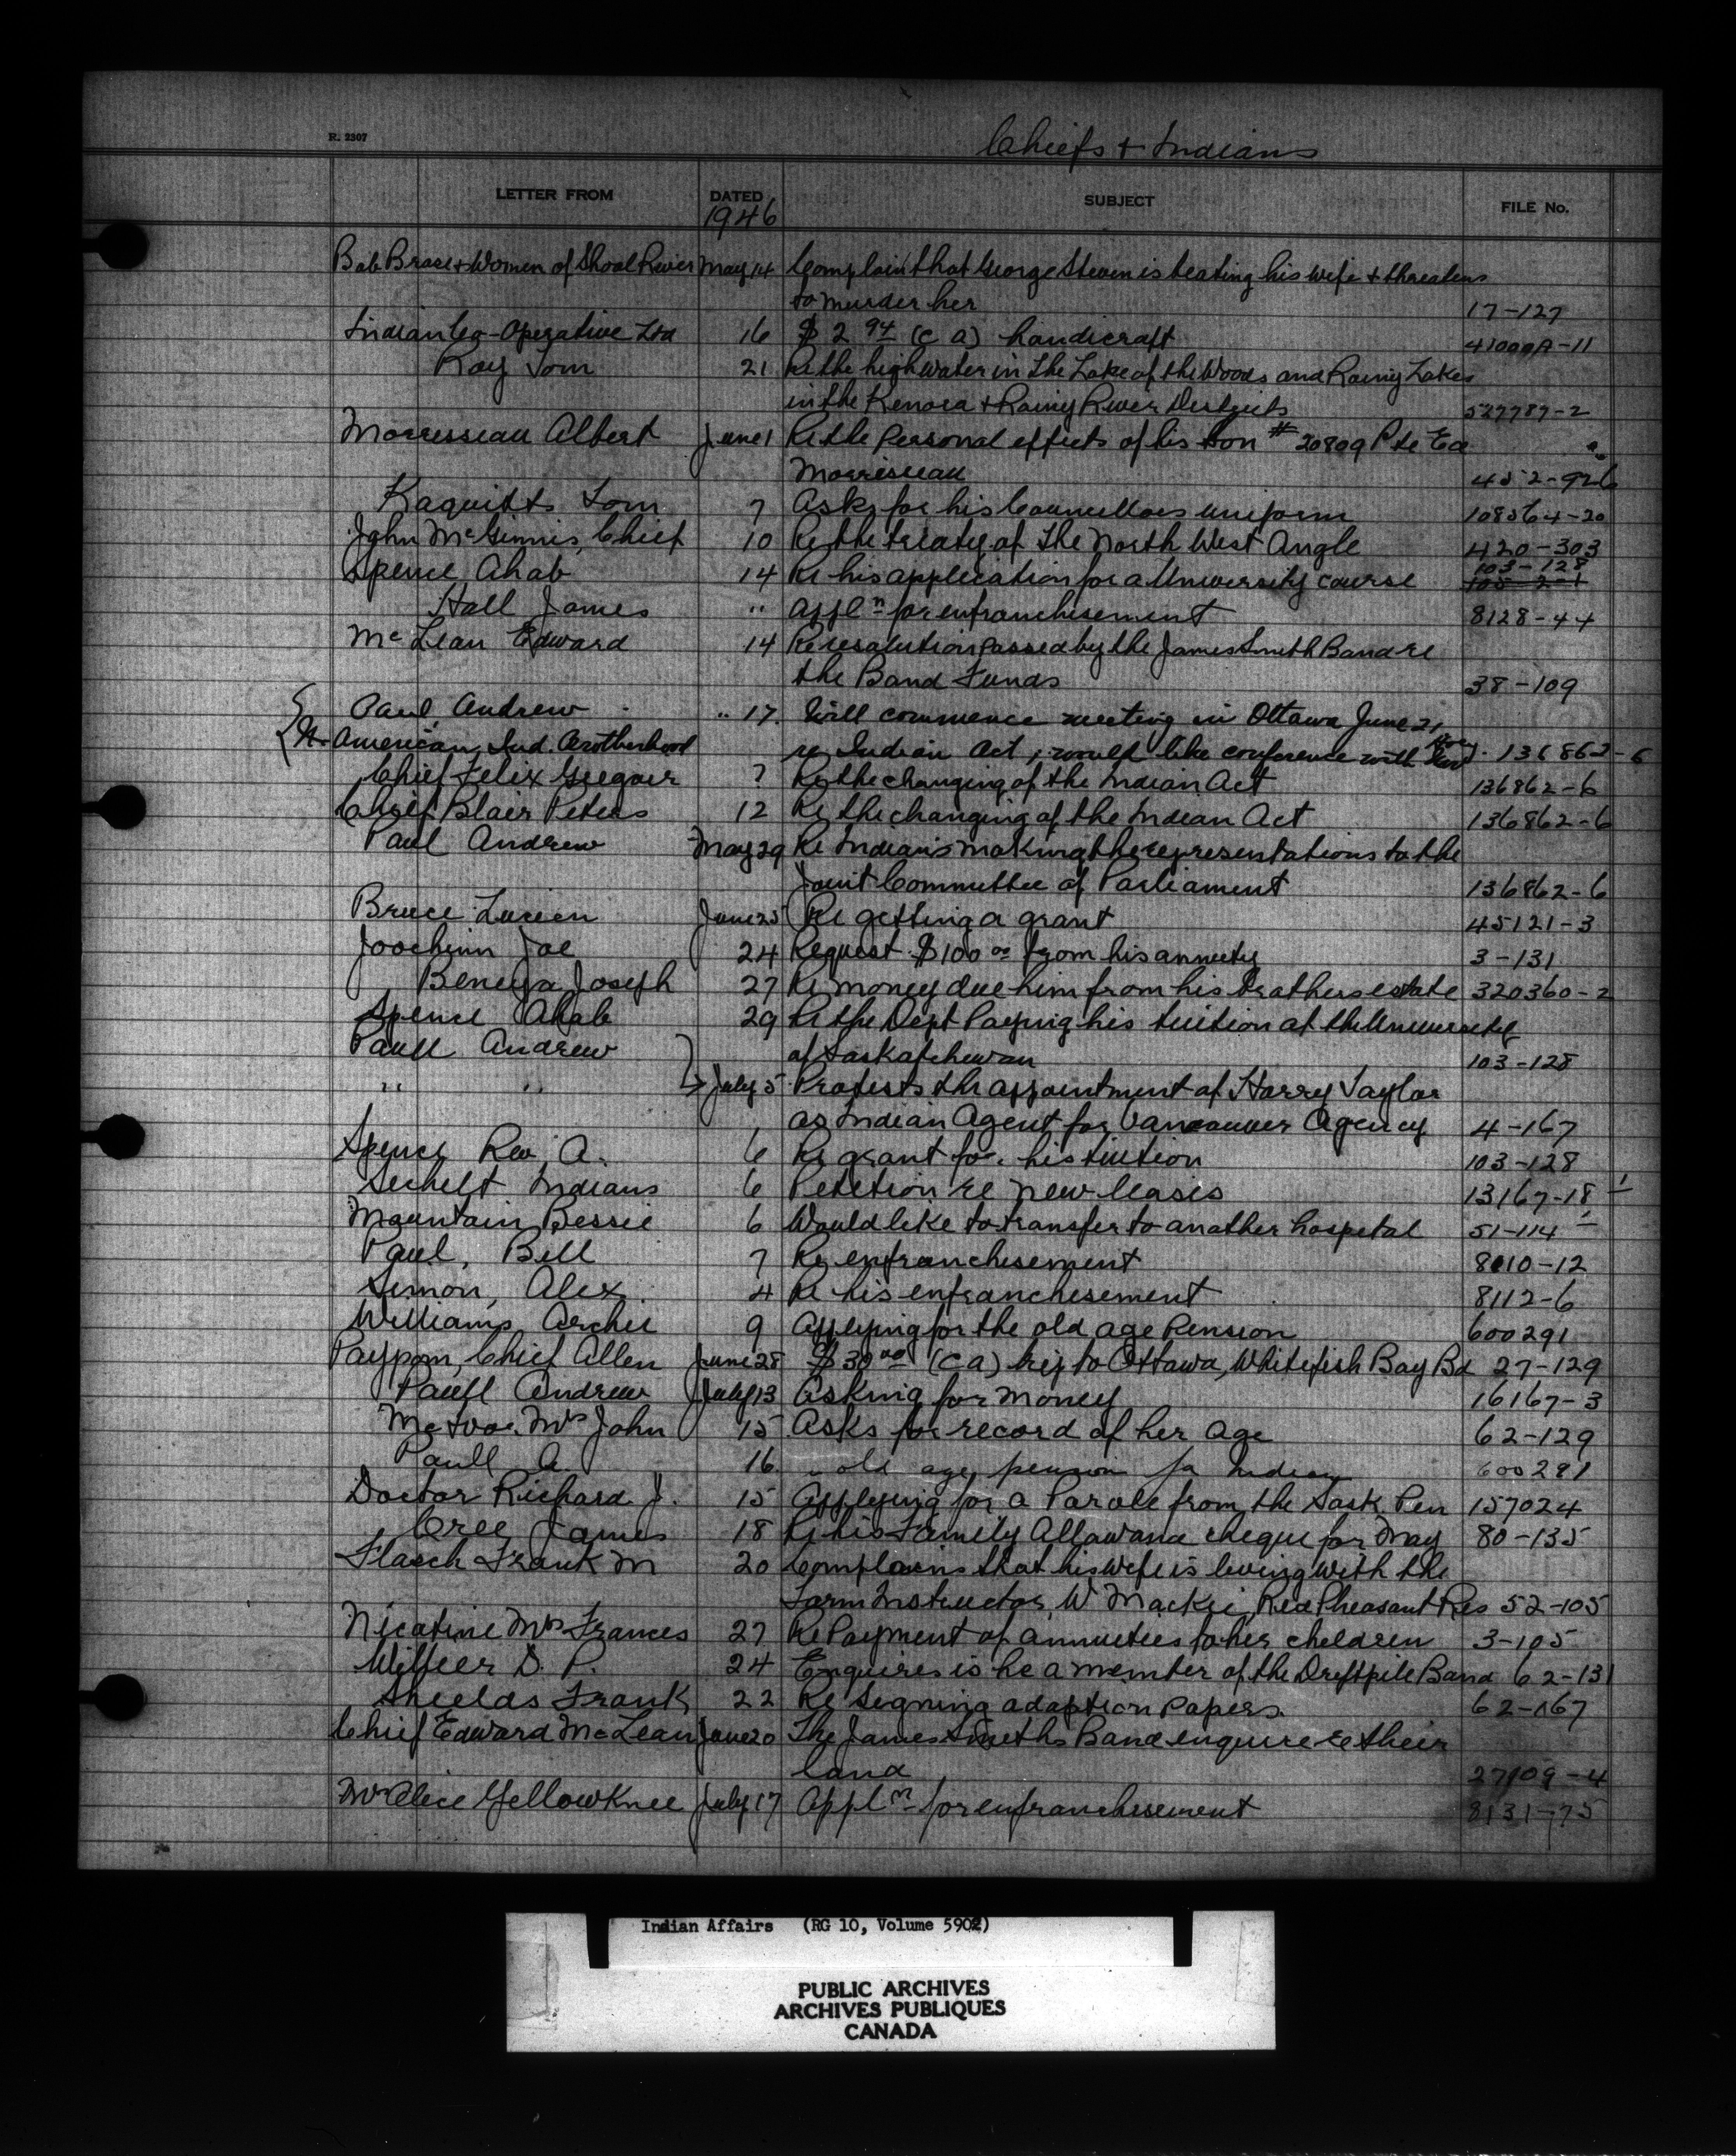 R. 2307
Chiefs + Indians
LETTER FROM DATED SUBJECT FILE No.
1946
Bob Brass + Women of Shoal River May 14 Complain that George Steven is beating his wife + threatens
to murder her 17-127
Indian Co-Operative Ltd 16 $2 94 (c a) handicraft 41000A-11
Roy Tom 21 Re the high water in the Lake of the Woods and Rainy Lakes
in the Kenora + Rainy River Districts 527787-2
Morrisseau Albert June 1 Re the personal effects of his son # 20809 Pte Ed
Morrisseau 452-926
Kaquitts Tom 7 Asks for his Councillors uniform 108564-20
John McGinnis, Chief 10 Re the treaty of the North West Angle 420-303
Spence Ahab 14 Re his application for a University course 103-128
Hall James " Appln for enfranchisement 8128-44
McLean Edward 14 Re resolution passed by the James Smith Band re
the Band Funds 38-109
Paul, Andrew " 17. Will commence meeting in Ottawa June 21
N. American Ind. Brotherhood re Indian Act, would like conference with 136862-6
Chief Felix Gregoir ? Re the changing of the Indian Act 136862-6
Chief Blair Peters 12 Re the changing of the Indian Act 136862-6
Paul Andrew May 29 Re Indians making the representations to the
Joint Committee of Parliament 136862-6
Bruce Lucien June 25 Re getting a grant 45121-3
Joachim Joe 24 Request $100 00 from his annuity 3-131
Joseph 27 Re money due him from his brothers estate 320360-2
Spence Ahab 29 Re the Dept Paying his tuition at the University
Paull Andrew of Saskatchewan 103-128
" " July 5 Protests the appointment of Harry Taylor
as Indian Agent for Vancouver Agency 4-167
Spence Rev. A. 6 Re grant for his tuition 103-128
Sechelt Indians 6 Petition re new leases 13167-18
Mountain Bessie 6 Would like to transfer to another hospital 51-114
Paul, Bill 7 Re enfranchisement 8010-12
Simon, Alex 4 Re his enfranchisement 8112-6
Williams Archie 9 Applying for the old age Pension 600291
Paypom, Chief Allen June 28 $30 00 (c a) trip to Ottawa, Whitefish Bay Bd 27-129
Paull Andrew July 13 Asking for money 16167-3
Mrs John 15 Asks for record of her age 62-129
Paull A. 16 " old age pension for Indians 600291
Doctor Richard J. 15 Applying for a Parole from the Sask Pen 157024
Cree James 18 Re his Family Allowance cheque for May 80-135
Frank M 20 Complains that his wife is living with the
Farm Instructor, W Mackie, Red Pheasant Res 52-105
Nicotine Mrs Frances 27 Re Payment of annuities to her children 3-105
Willier D. P. 24 Enquires is he a member of the Driftpile Band 62-131
Shields Frank 22 Re signing adoption papers 62-167
Chief Edward McLean June 20 The James Smiths Band enquire re their
land 27109-4
Mrs Alice Yellowknee July 17 Appln for enfranchisement 8131-75
Indian Affairs (RG 10, Volume 5902)
PUBLIC ARCHIVES
ARCHIVES PUBLIQUES
CANADA